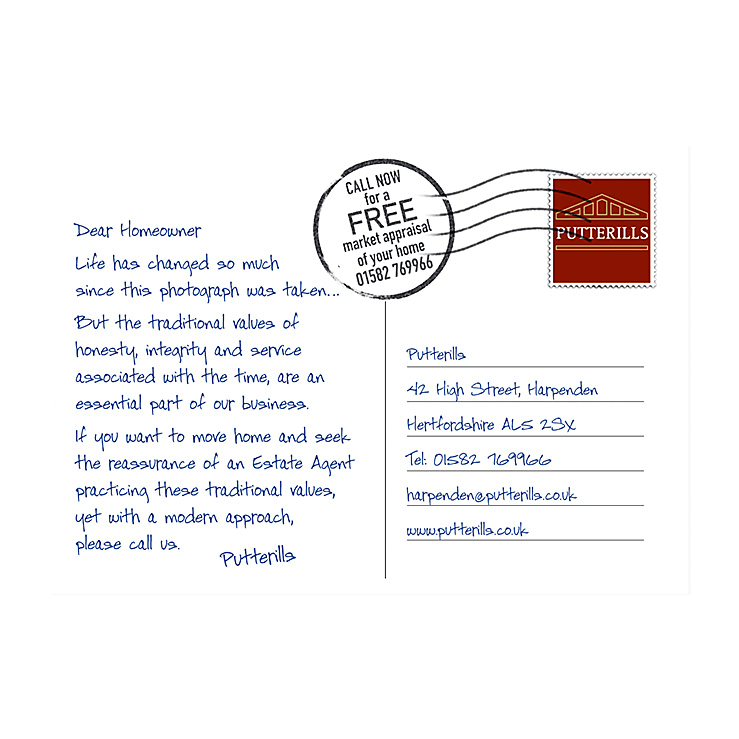 CALL NOW
for a
FREE
market appraisal
of your home
01582 769966
PUTTERILLS
Dear Homeowner
Life has changed so much
since this photograph was taken...
But the traditional values of
honesty, integrity and service
associated with the time, are an
essential part of our business.
If you want to move home and seek
the reassurance of an Estate Agent
practicing these traditional values,
yet with a modern approach,
please call us.
Putterills
Putterills
42 High Street, Harpenden
Hertfordshire AL5 2SX
Tel: 01582 769966
harpenden@putterills.co.uk
www.putterills.co.uk